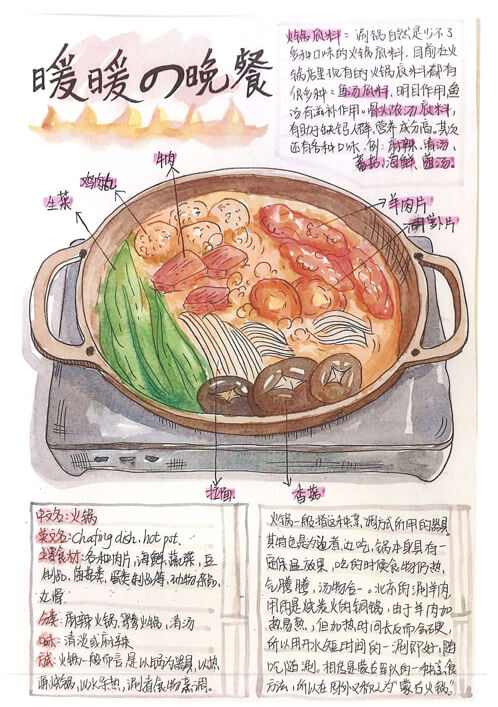 暖暖の晚餐
火锅底料：涮锅自然是少不了
多种口味的火锅底料，目前在火
锅店里现有的火锅底料都有
很多种：鱼汤底料，明目作用鱼
汤有滋补作用。骨头浓汤底料，
有助于缺钙人群，营养成分高。其次
还有各种口味，例：麻辣、清汤、
番茄、海鲜、菌汤。
牛肉
鸡肉丸
生菜
羊肉片
胡萝卜片
拉面
香菇
中文名：火锅
英文名：Chafing dish. hot pot.
主要食材：各种肉片，海鲜，蔬菜，豆
制品，菌菇类，蛋类制品等，动物杂碎，
丸滑
分类：麻辣火锅，清汤
口味：清淡或麻辣
方式：火锅一般而言是以锅为器具，以热
源烧锅，以水导热，涮煮食物烹调。
火锅一般指这种烹调方式所用的器具。
其特色是为边煮边吃，锅本身具有一
定保温效果，吃的时候食物仍热
气腾腾，汤物合一。北京的涮羊肉
用的是烧炭火的铜锅，由于羊肉加
热易熟，但加热时间长反而会老硬，
所以用开水短时间的一涮即好，随
吃随涮。相思是蒙古军队的一种速食
方法，所以在国外又称之为"蒙古火锅"